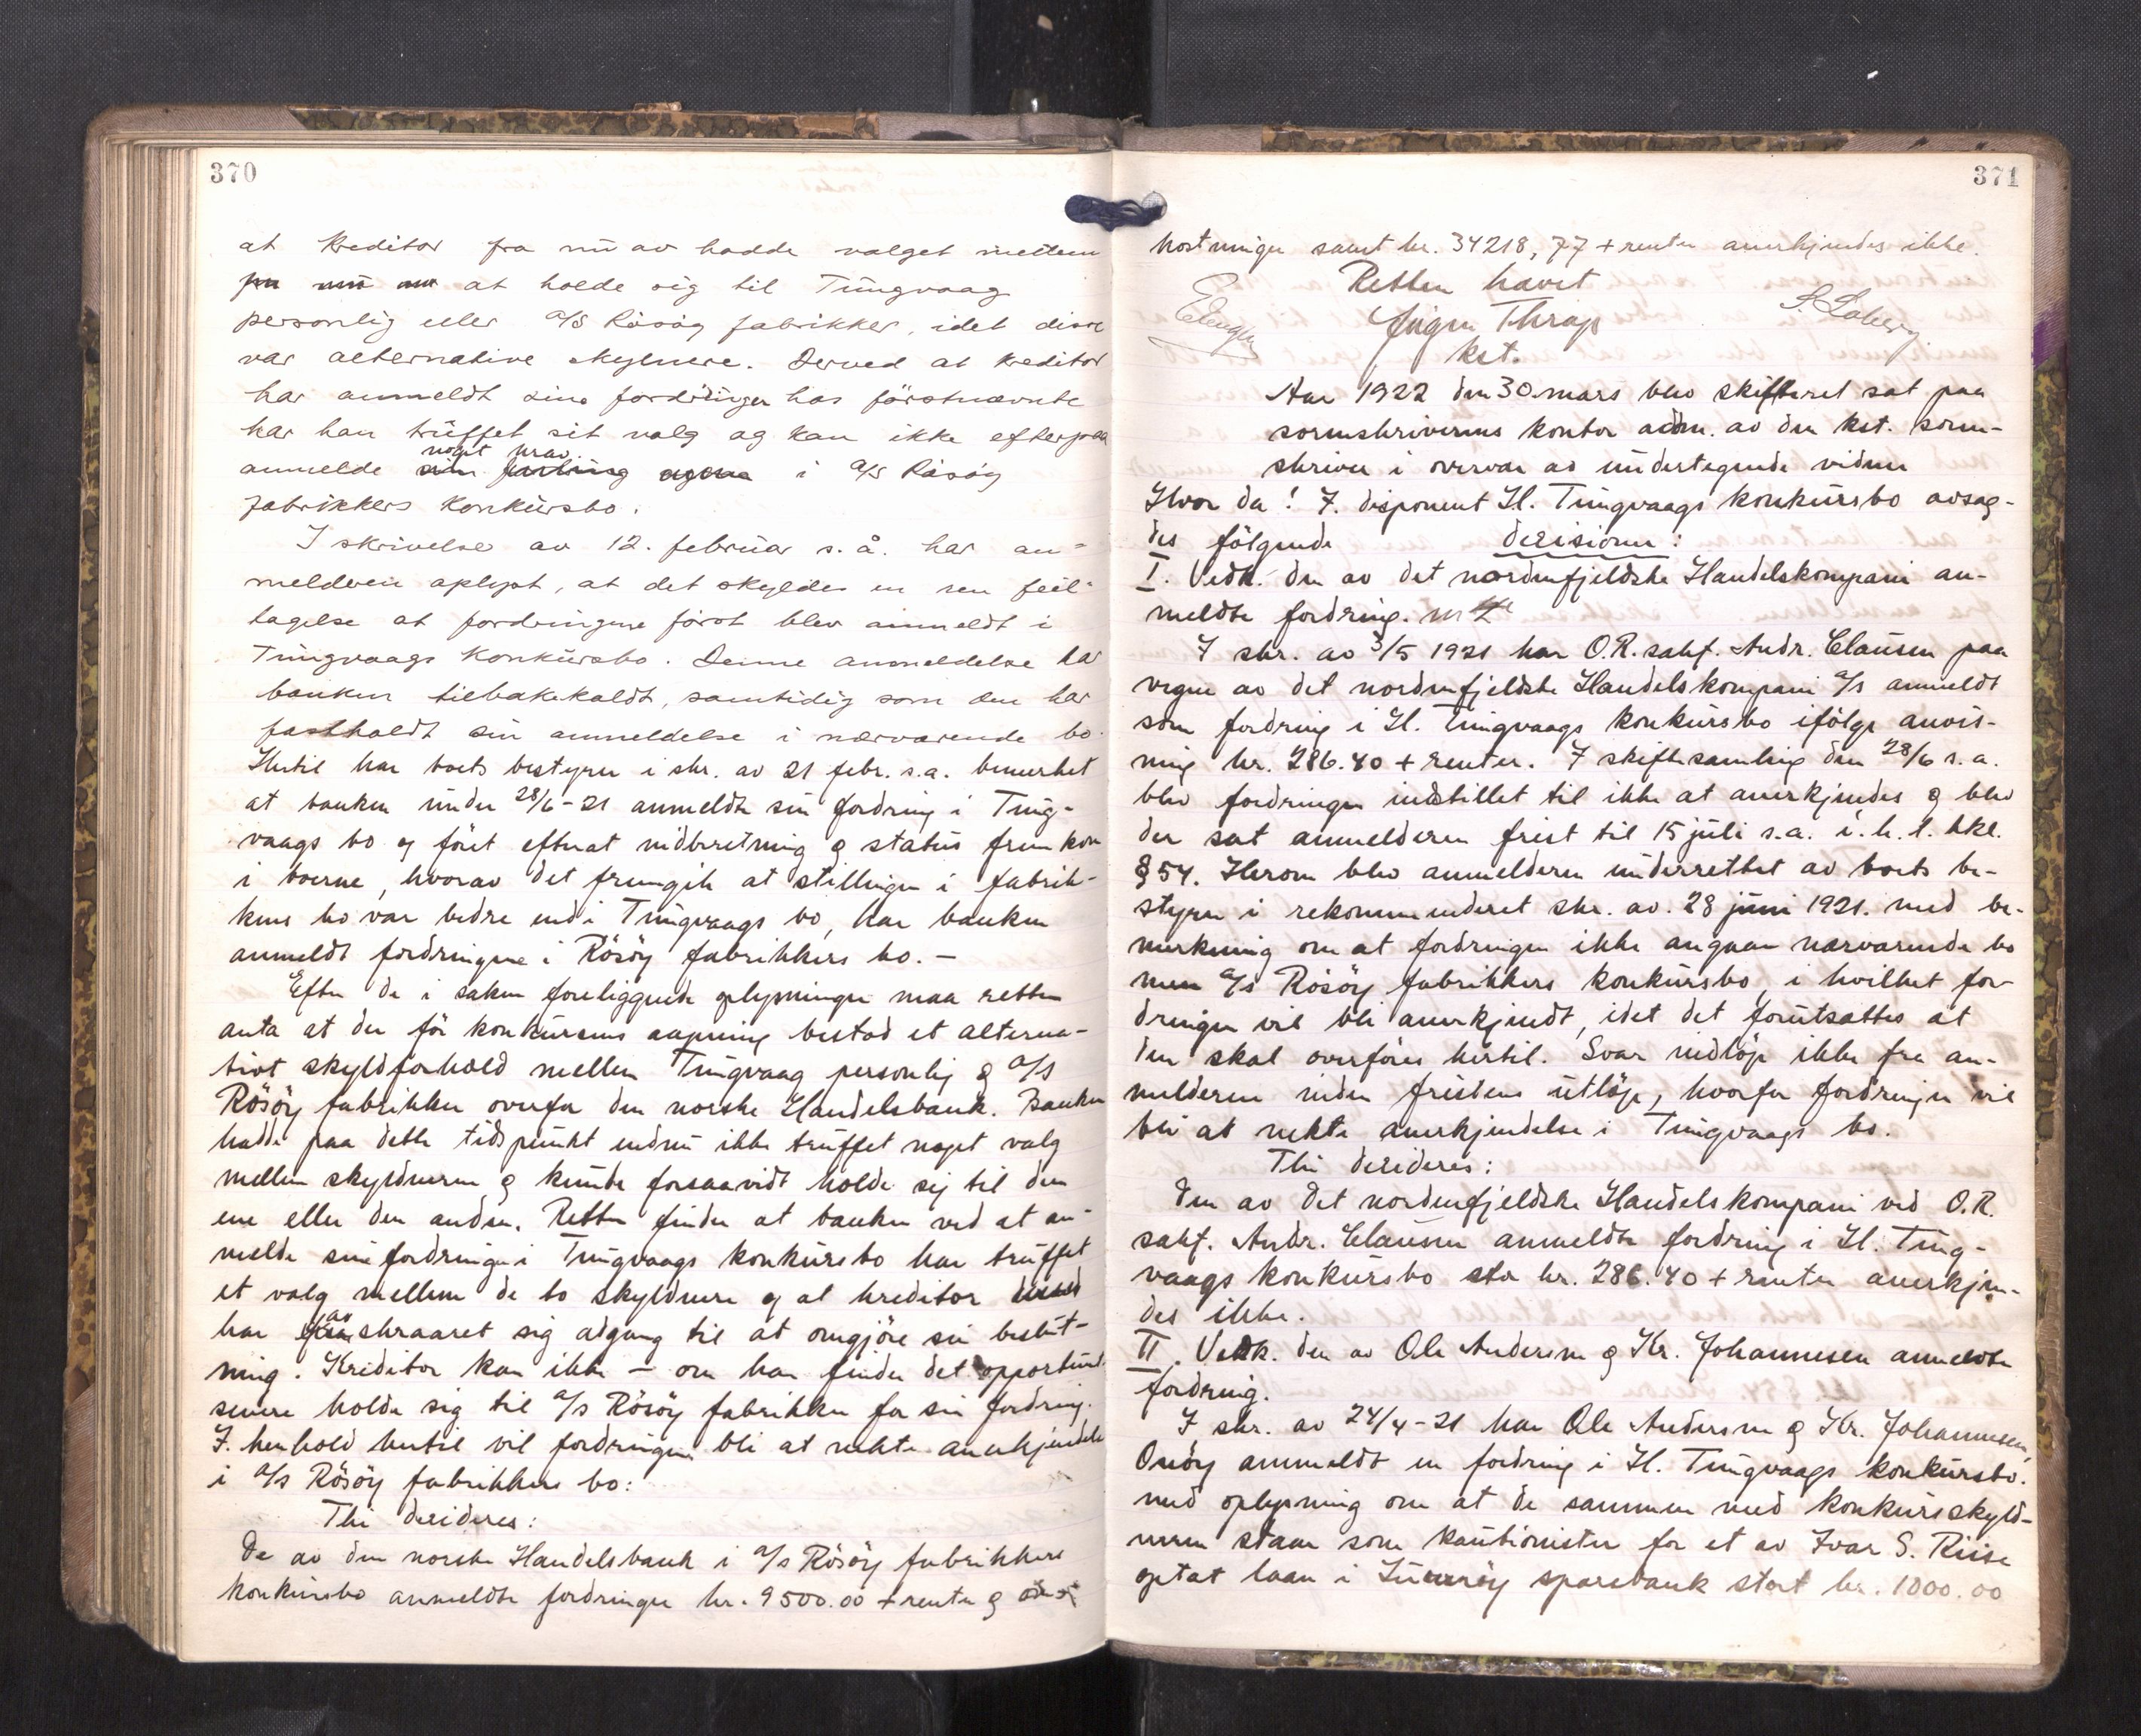 370
at kreditor fra nu av hadde valget mellem
at holde sig til Tungvaag
personlig eller A/S Rösöy fabrikker, idet disse
var alternative skyldnere. Derved at kreditor
har anmeldt sine fordringer hos förstnævnte
har han truffet sit valg og kan ikke efterpaa
anmelde noget krav i A/S Rösöy
fabrikkers konkursbo.
I skrivelse av 12. februar s.å. har an-
melderen oplyst, at det skyldes en ren feil-
tagelse at fordringene först blev anmeldt i
Tungvaags konkursbo. Denne anmeldelse har
banken tilbakekaldt, samtidig som den har
fastholdt sin anmeldelse i nærværende bo.
Hertil har boets bestyrer i skr. av 21 febr. s.a. bemerket
at banken under 28/6-21 anmeldte sin fordring i Tung-
vaags bo og först efterat indberetning og status fremkom
i boerne, hvorav det fremgik at stillingen i fabrik-
kens bo var bedre end i Tungvaags bo, har banken
anmeldt fordringene i Rösöy fabrikkers bo. —
Efter de i saken foreliggende oplysninger maa retten
anta at der för konkursens aapning bestod et alterna-
tivt skyldforhold mellem Tungvaag personlig og A/S
Rösöy fabrikker overfor den norske Handelsbank. Banken
hadde paa dette tidspunkt endnu ikke truffet noget valg
mellem skyldnerne og kunde forsaavidt holde sig til den
ene eller den anden. Retten finder at banken ved at an-
melde sine fordringer i Tungvaags konkursbo har truffet
et valg mellem de to skyldnere og at kreditor
har avskraaret sig adgang til at omgjöre sin beslut-
ning. Kreditor kan ikke — om han finder det opportunt
senere holde sig til A/S Rösöy fabrikker for sin fordring.
I henhold hertil vil fordringene bli at nekte anerkjendelse
i A/S Rösöy fabrikkers bo:
Thi decideres:
De av den norske Handelsbank i A/S Rösöy fabrikkers
konkursbo anmeldte fordringer kr. 9500.00 + renter og
371
kostninger samt kr. 34218,77 + renter anerkjendes ikke.
Retten hævet
Jörgen Thrap
kst.
Aar 1922 den 30. mars blev skifteret sat paa
sorenskriverens kontor adm. av den kst. soren-
skriver i overvær av undertegnede vidner
Hvor da! I. disponent H. Tungvaags konkursbo avsag-
des følgende decisioner:
I. Vedk. den av det nordenfjeldske Handelskompani an-
meldte fordring.
I skr. av 3/5 1921 har O.R. sakf. Andr. Clausen paa
vegne av det nordenfjeldske Handelskompani A/S anmeldt
som fordring i H. Tungvaags konkursbo ifölge anvis-
ning kr. 286.40 + renter. I skiftesamling den 28/6 s.a.
blev fordringen indstillet til ikke at anerkjendes og blev
der sat anmelderen frist til 15 juli s.a. i.h.t. kkl.
§ 54. Herom blev anmelderen underrettet av boets be-
styrer i rekommenderet skr. av. 28 juni 1921. med be-
merkning om at fordringen ikke angaar nærværende bo
men A/S Rösöy fabrikkers konkursbo, i hvilket for-
dringen vil bli anerkjendt, idet det forutsattes at
den skal overföres hertil. Svar indlöp ikke fra an-
melderen inden fristens utlöp, hvorfor fordringen vil
bli at nekte anerkjendelse i Tungvaags bo.
Thi decideres:
Den av det nordenfjeldske Handelskompani ved O.R.
sakf. Andr. Clausen anmeldte fordring i H. Tung-
vaags konkursbo stor kr. 286.40 + renter anerkjen-
des ikke.
II. Vedk. den av Ole Andersen og Kr. Johannesen anmeldte
fordring.
I skr. av 24/4-21 har Ole Andersen og Kr. Johannesen,
Onöy anmeldt en fordring i H. Tungvaags konkursbo.
med oplysning om at de sammen med konkursskyld-
neren staar som kautionister for et av Ivar S. Riise
optat laan i Luröy sparebank stort kr. 1000.00